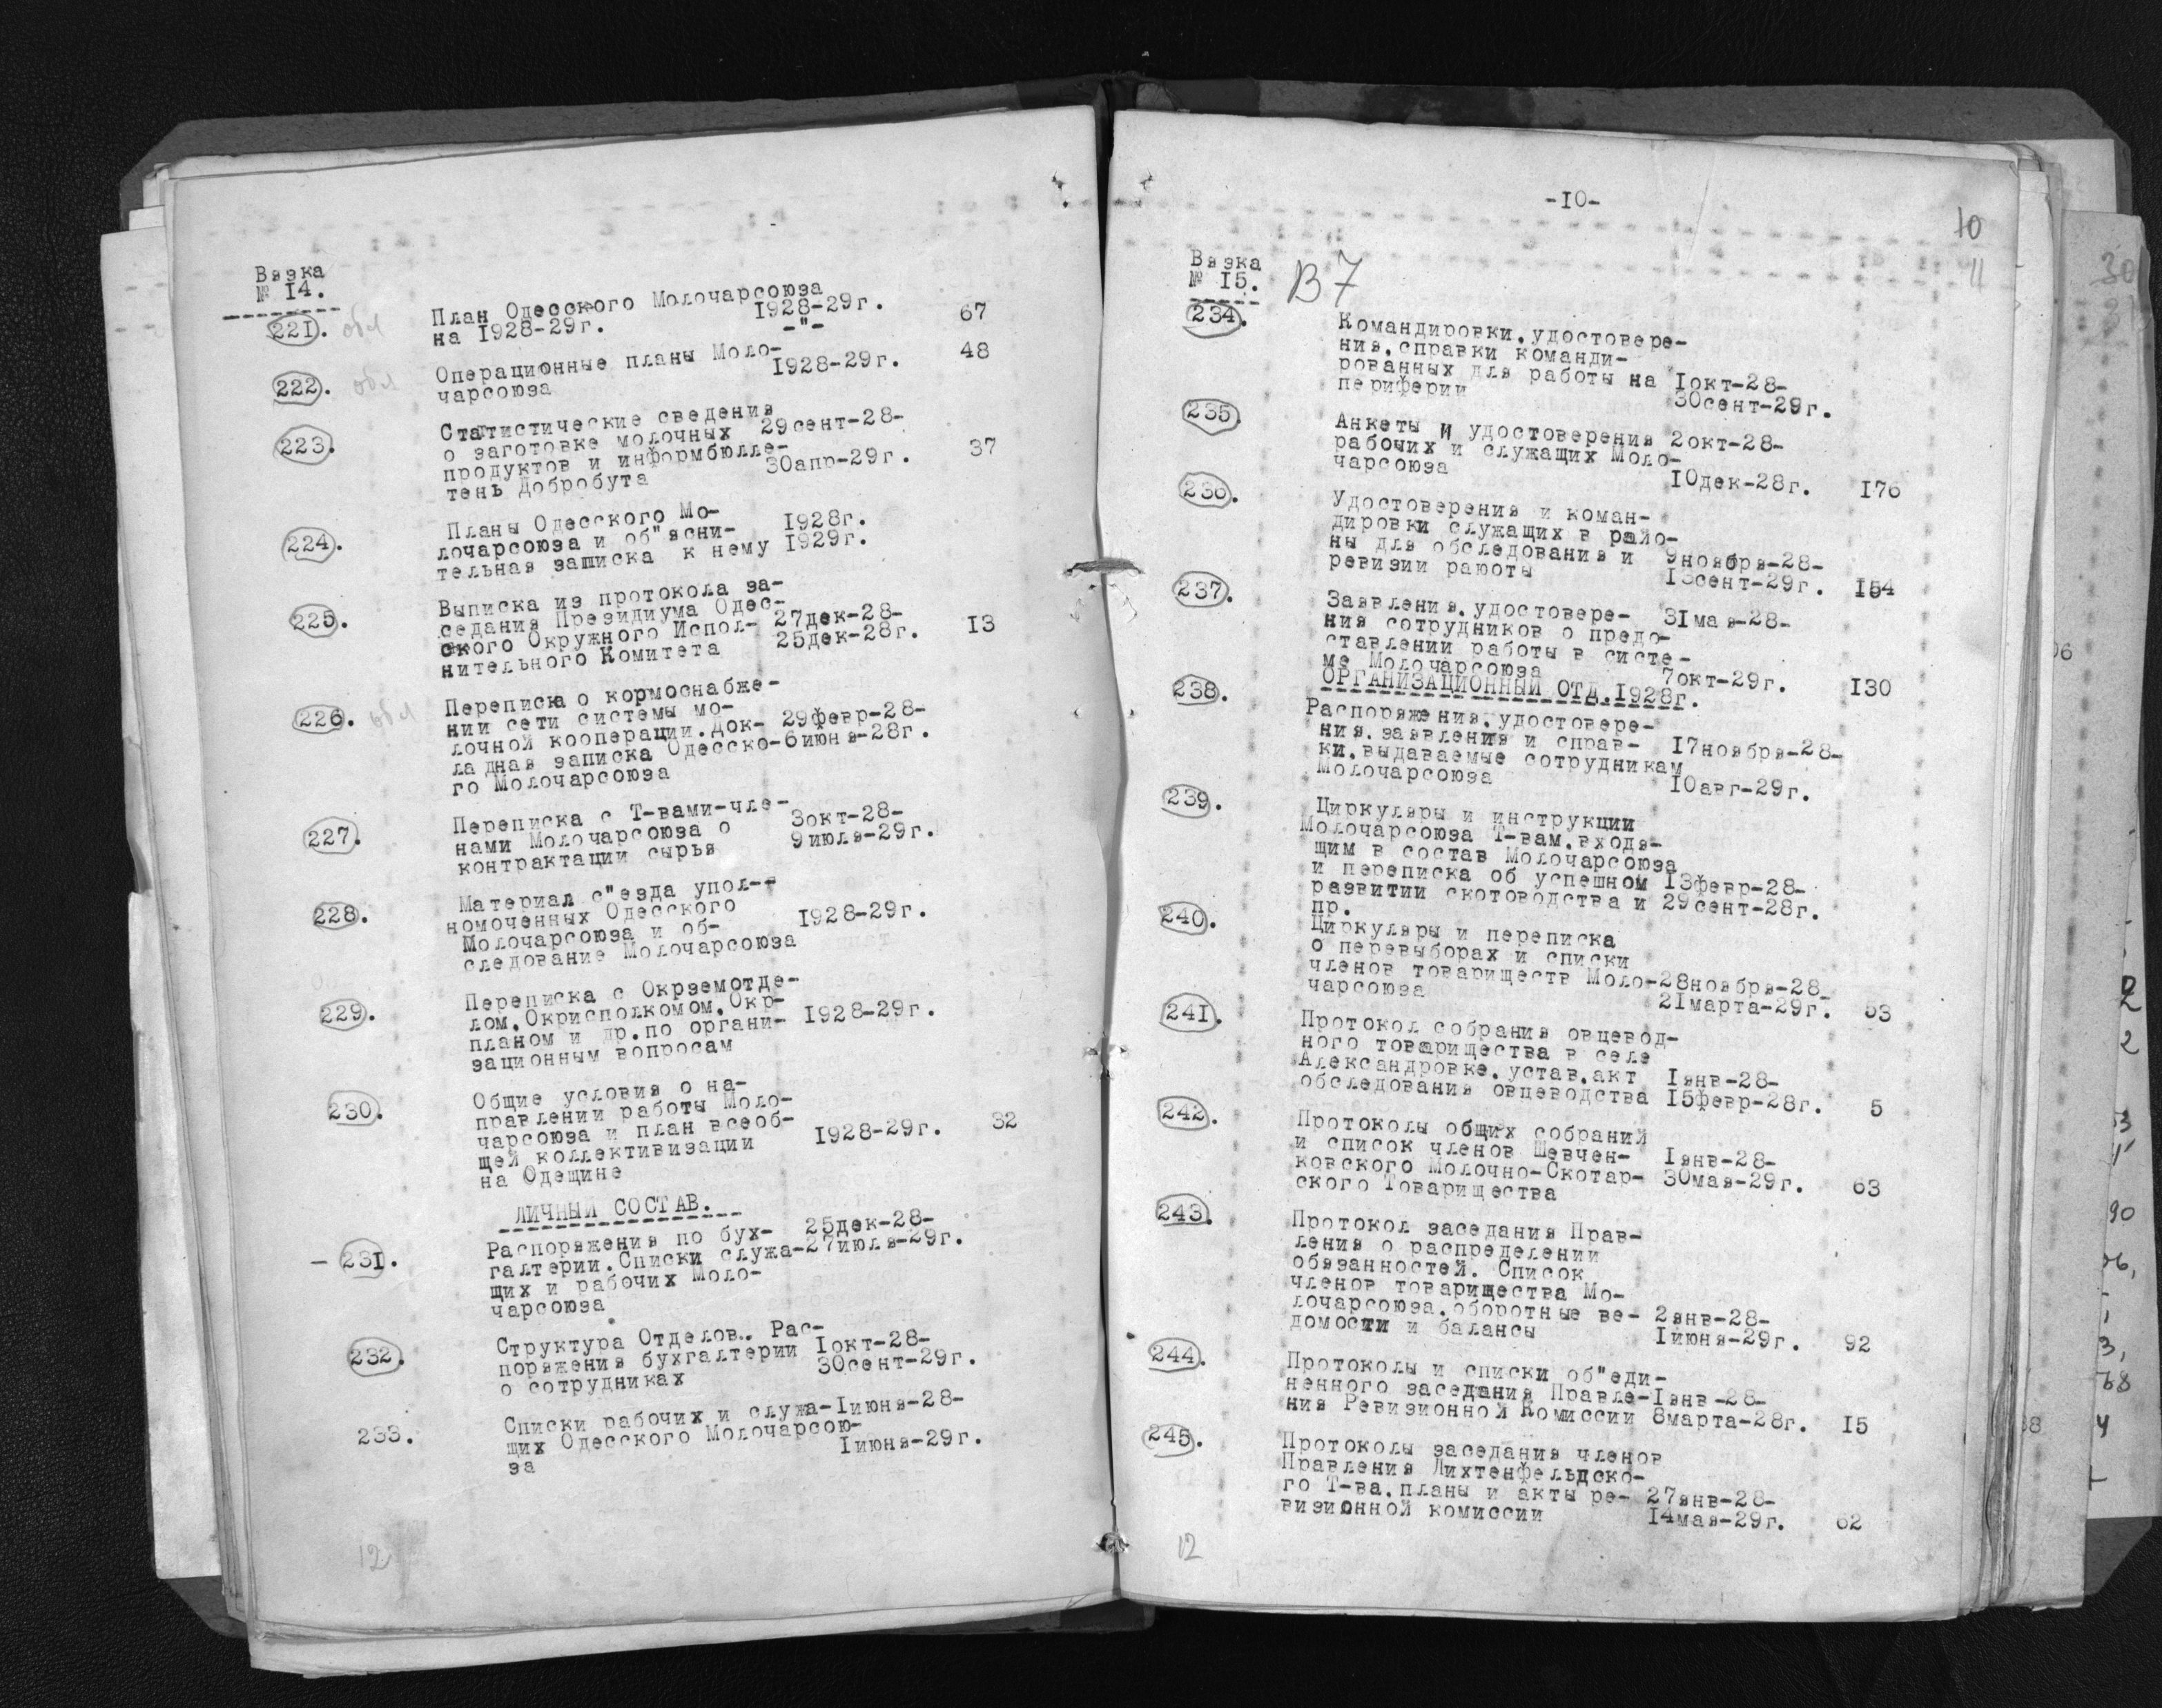 Вязка
№ 14.
221. обл
План Одесского Молочарсоюза
на 1928-29г. 1928-29г. 67
-"-
222. обл
Операционные планы Моло-
чарсоюза 1928-29г. 48
223.
Статистические сведения
о заготовке молочных 29сент-28-
продуктов и информбюлле-
тень Добробута 30апр-29г. 37
224.
Планы Одесского Мо-
лочарсоюза и об"ясни- 1928г.
тельная записка к нему 1929г.
225.
Выписка из протокола за-
седания Президиума Одес-
ского Окружного Испол- 27дек-28-
нительного Комитета 25дек-28г. 13
226. обл
Переписка о кормоснабже-
нии сети системы мо-
лочной кооперации. Док- 29февр-28-
ладная записка Одесско-6июня-28г.
го Молочарсоюза
227.
Переписка с Т-вами-чле-
нами Молочарсоюза о 3окт-28-
контрактации сырья 9июля-29г.
228.
Материал с"езда упол--
номоченных Одесского
Молочарсоюза и об- 1928-29г.
следование Молочарсоюза
229.
Переписка с Окрземотде-
лом, Окрисполкомом, Окр-
планом и др. по органи- 1928-29г.
зационным вопросам
230.
Общие условия о на-
правлении работы Моло-
чарсоюза и план всеоб-
щей коллективизации 1928-29г. 32
на Одещине
ЛИЧНЫЙ СОСТАВ.
- 231.
Распоряжения по бух- 25дек-28-
галтерии. Списки служа-27июля-29г.
щих и рабочих Моло-
чарсоюза
232.
Структура Отделов.. Рас-
поряжения бухгалтерии 1окт-28-
о сотрудниках 30сент-29г.
233.
Списки рабочих и служа-1июня-28-
щих Одесского Молочарсою-
за 1июня-29г.
12
-10-
10
11
Вязка
№ 15. В7
234.
Командировки, удостовере-
ния, справки команди-
рованных для работы на 1окт-28-
периферии 30сент-29г.
235.
Анкеты и удостоверения 2окт-28-
рабочих и служащих Моло-
чарсоюза 10дек-28г. 176
236.
Удостоверения и коман-
дировки служащих в райо-
ны для обследования и 9ноября-28-
ревизии раюоты сент-29г. 154
237.
Заявления, удостовере- 31мая-28-
ния сотрудников о предо-
ставлении работы в систе-
ме Молочарсоюза 7окт-29г. 130
238.
ОРГАНИЗАЦИОННЫЙ ОТД. 1928г.
Распоряжения, удостовере-
ния, заявления и справ- 17ноября-28-
ки, выдаваемые сотрудникам
Молочарсоюза 10авг-29г.
239.
Циркуляры и инструкции
Молочарсоюза Т-вам, входя-
щим в состав Молочарсоюза
и переписка об успешном 13февр-28-
развитии скотоводства и 29сент-28г.
пр.
240.
Циркуляры и переписка
о перевыборах и списки
членов товариществ Моло-28ноября-28-
чарсоюза 21марта-29г. 53
241.
Протокол собрания овцевод-
ного товарищества в селе
Александровке, устав, акт 1янв-28-
обследования овцеводства 15февр-28г. 5
242.
Протоколы общих собраний
и список членов Шевчен- 1янв-28-
ковского Молочно-Скотар- 30мая-29г. 63
ского Товарищества
243.
Протокол заседания Прав-
ления о распределении
обязанностей. Список
членов товарищества Мо-
лочарсоюза, оборотные ве- 2янв-28-
домости и балансы 1июня-29г. 92
244.
Протоколы и списки об"еди-
ненного заседания Правле-1янв-28-
ния Ревизионной Комиссии 8марта-28г. 15
245.
Протоколы заседания членов
Правления Лихтенфельдско-
го Т-ва, планы и акты ре- 27янв-28-
визионной комиссии 14мая-29г. 62
12